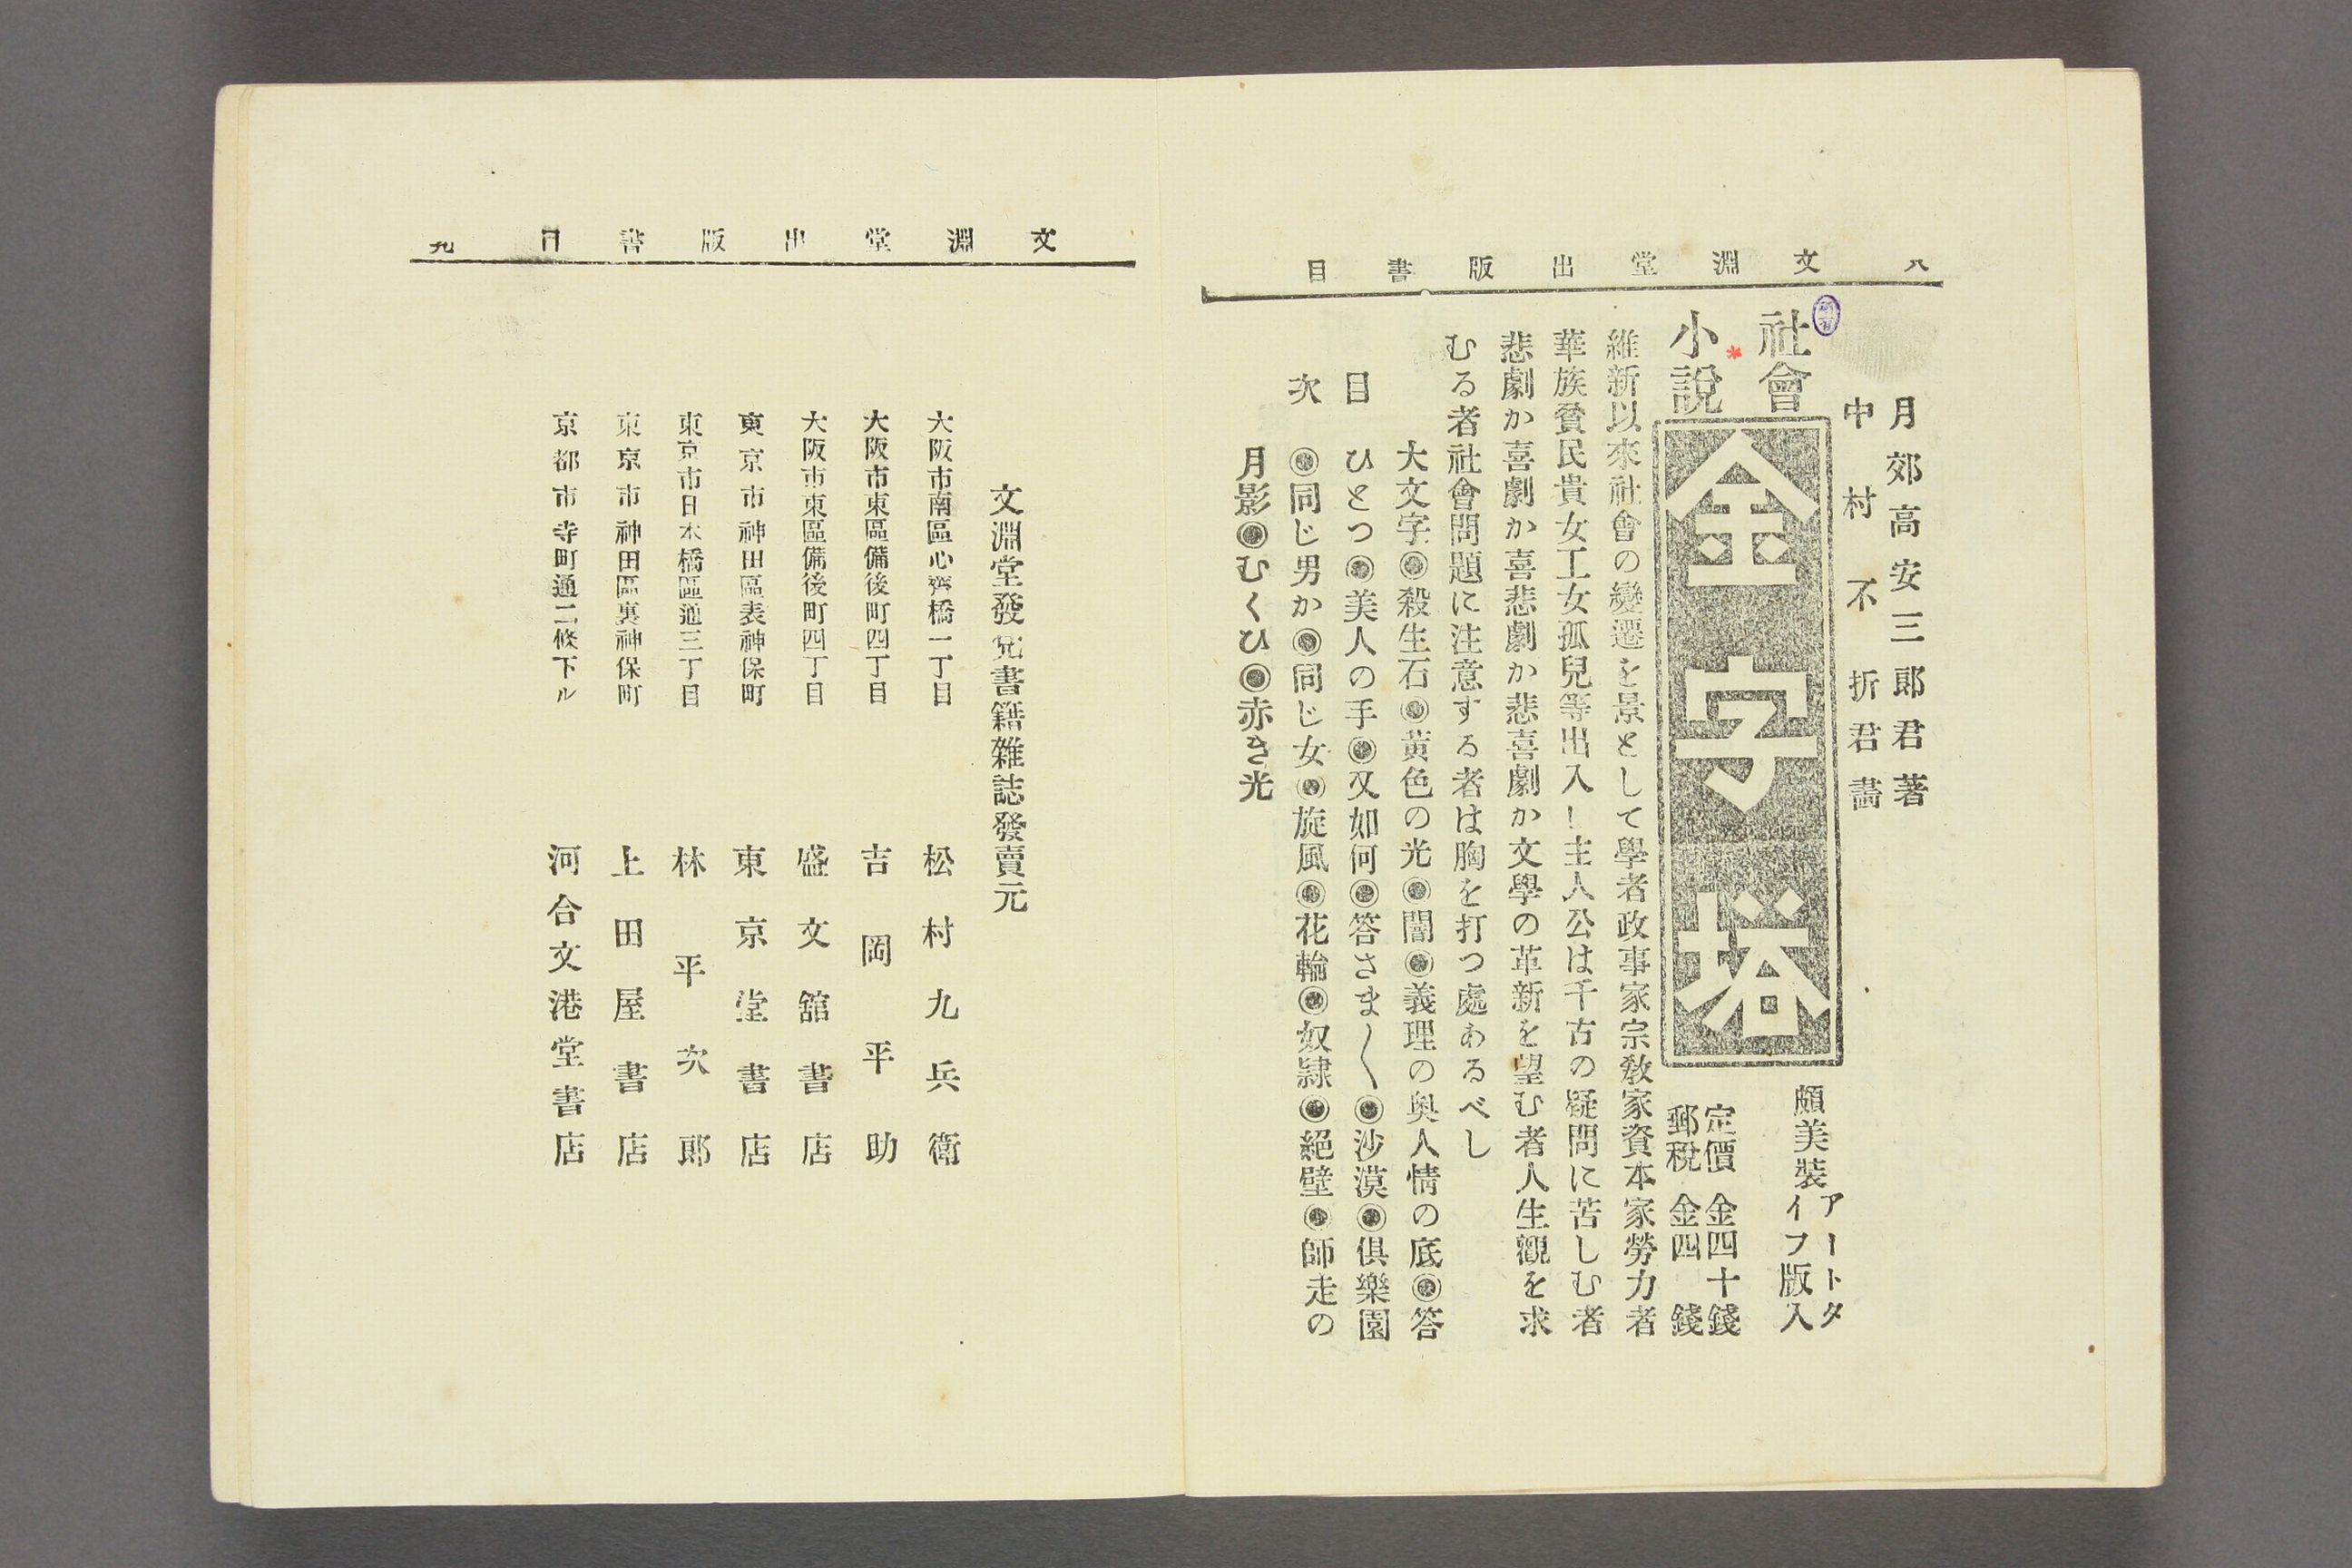 八　文淵堂出版書目
月郊高安三郎君著
中村不折君畵
社會
小說
金字塔
頗美裝
アートタ
イプ版入
定價　金四十錢
郵稅　金四錢
維新以來社會の變遷を景として學者政事家宗敎家資本家勞力者
華族貧民貴女工女孤兒等出入し主人公は千古の疑問に苦しむ者
悲劇か喜劇か喜悲劇か悲喜劇か文學の革新を望む者人生觀を求
むる者社會問題に注意する者は胸を打つ處あるべし
目次
大文字◉殺生石◉黃色の光◉闇◉義理の奥人情の底◉答
ひとつ◉美人の手◉又如何◉答さま〱◉沙漠◉俱樂園
◉同じ男か◉同じ女◉旋風◉花輪◉奴隷◉絕壁◉師走の
月影◉むくひ◉赤き光
文淵堂出版書目　九
文淵堂發兌書籍雜誌發賣元
大阪市南區心齊橋一丁目　松村九兵衛
大阪市東區備後町四丁目　吉岡平助
大阪市東區備後町四丁目　盛文舘書店
東京市神田區表神保町　東京堂書店
東京市日本橋區通三丁目　林平次郎
東京市神田區裏神保町　上田屋書店
京都市寺町通二條下ル　河合文港堂書店